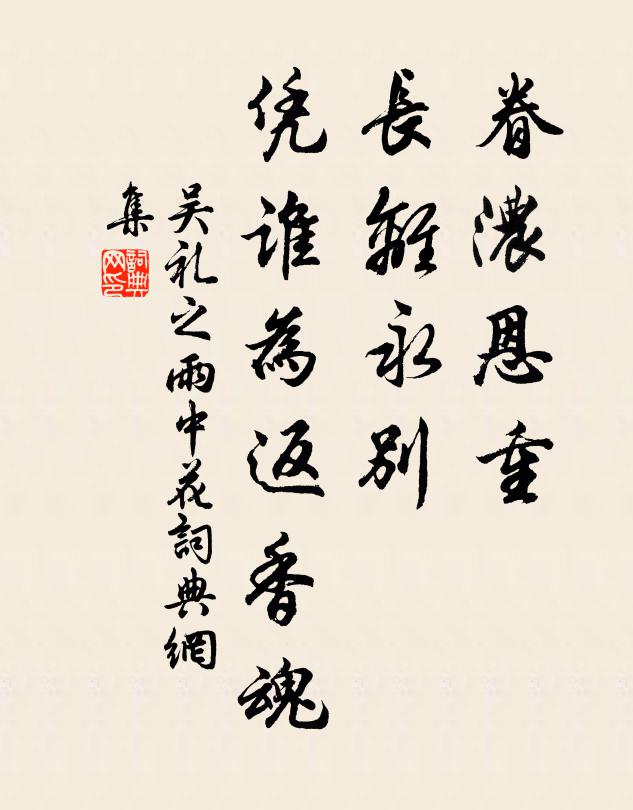 眷濃恩重
長離永別
凭誰為返香魂
吴礼之雨中花詞典網
集
詞典
网印